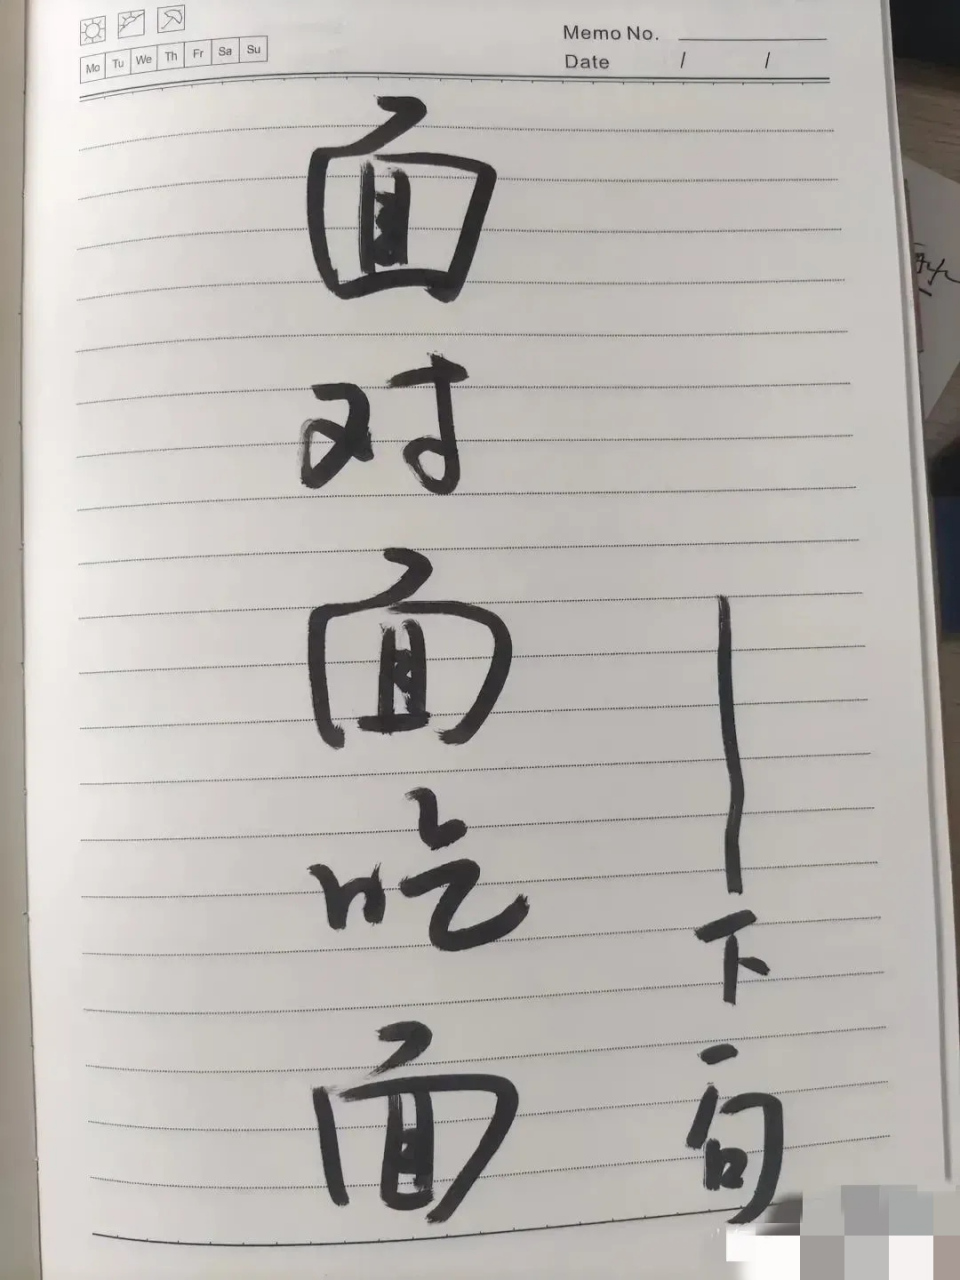 Mo Tu We Th Fr Sa Su
Memo No.
Date / /
面对面吃面
——下一句